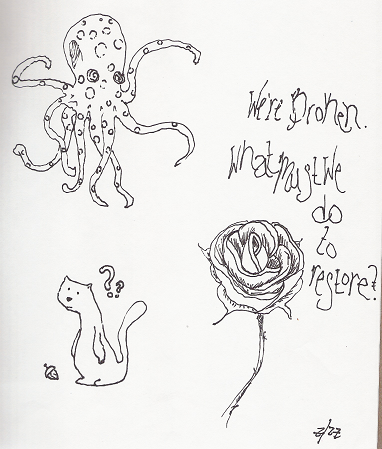 We're Broken.
What must we
do
to
restore?
??
2/22